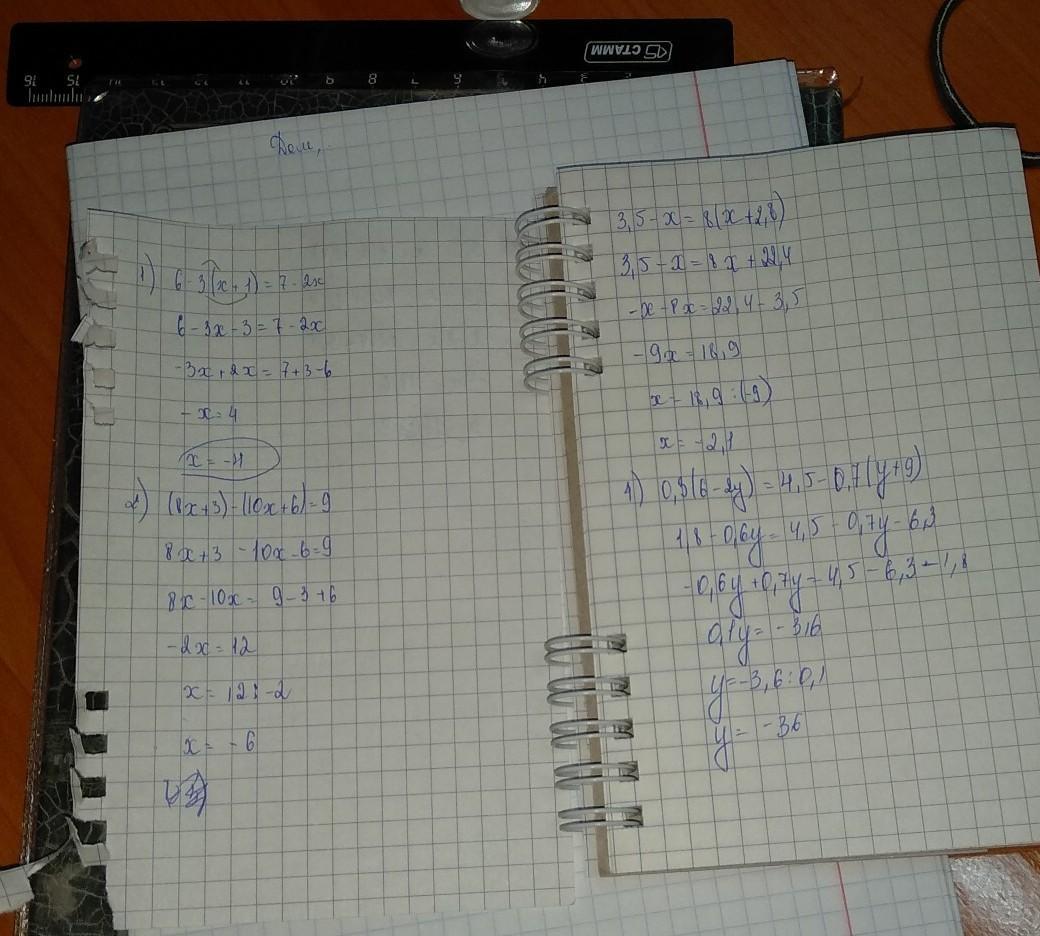 СТАММ
16 15 10 9 8 7 6 5 4 3
Дом,
1) 6-3(x+1)=7-2x
6-3x-3=7-2x
-3x+2x=7+3-6
-x=4
x=-4
2) (8x+3)-(10x+6)=9
8x+3-10x-6=9
8x-10x=9-3+6
-2x=12
x=12:-2
x=-6
3,5-x=8(x+2,8)
3,5-x=8x+22,4
-x-8x=22,4-3,5
-9x=18,9
x=18,9:(-9)
x=-2,1
4) 0,3(6-2y)=4,5-0,7(y+9)
1,8-0,6y=4,5-0,7y-6,3
-0,6y+0,7y=4,5-6,3-1,8
0,1y=-3,6
y=-3,6:0,1
y=-36